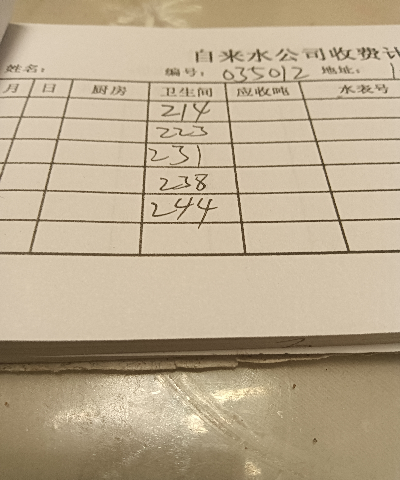 自来水公司收费计
姓名: 编号: 035012 地址:
月 日 厨房 卫生间 应收吨 水表号
214
223
231
238
244